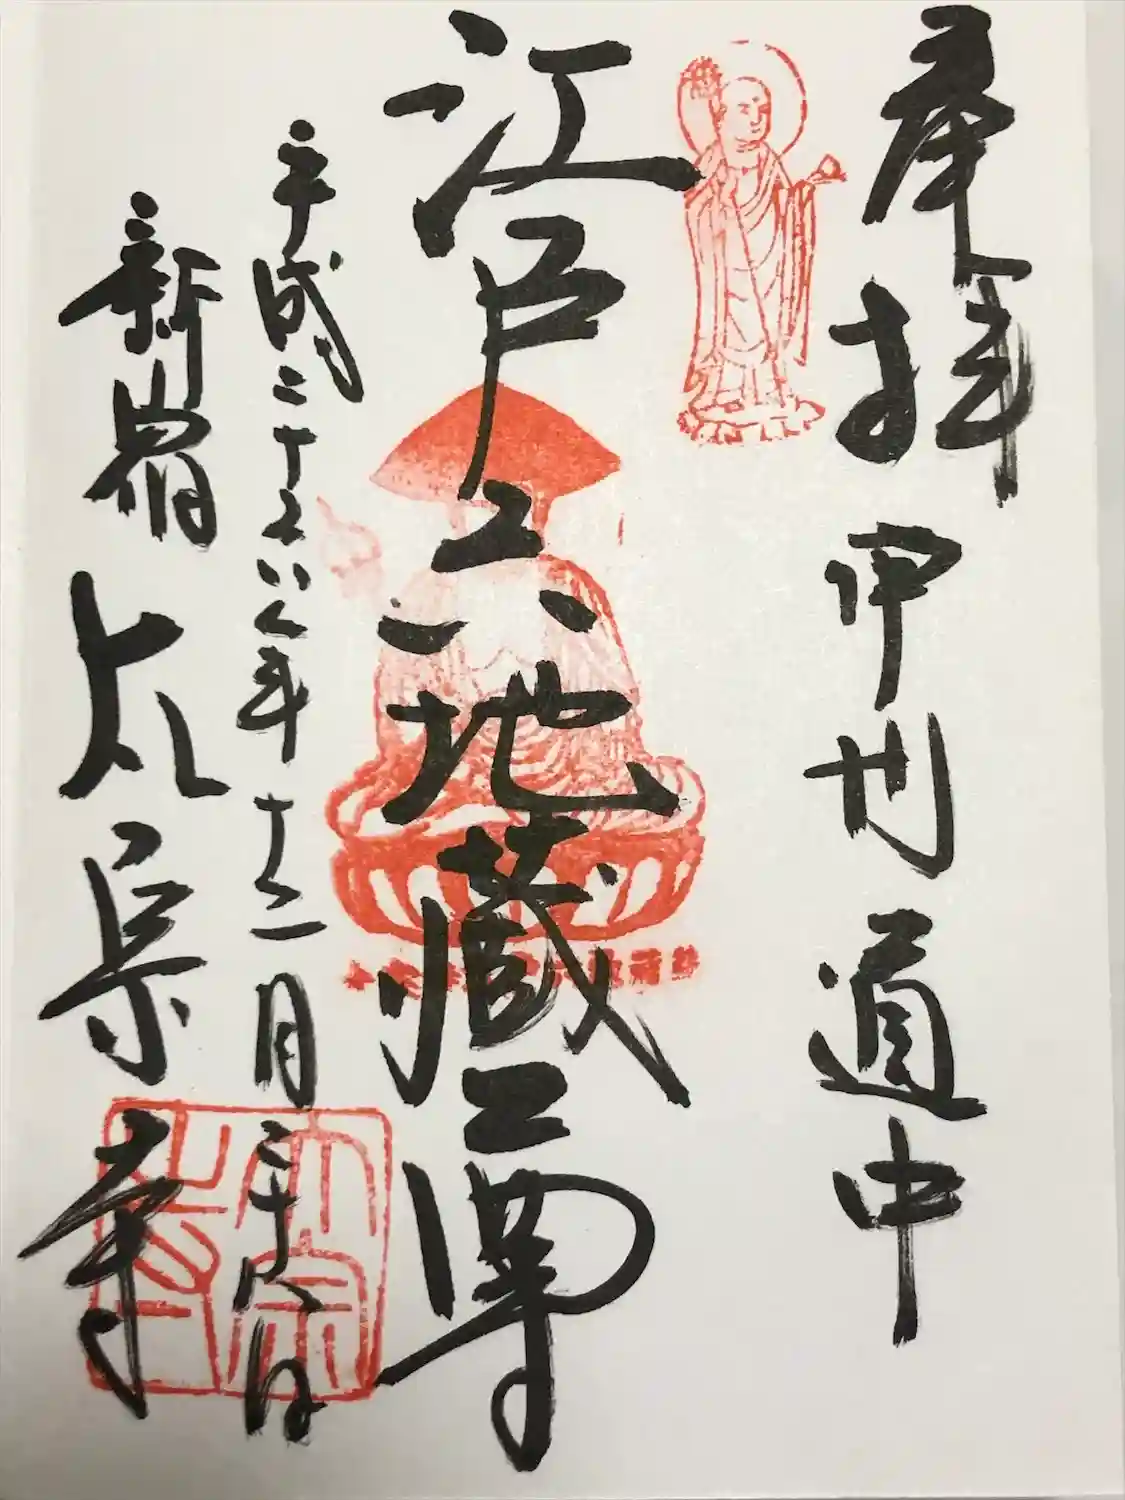 奉拝 甲州道中
江戸六地蔵尊
十二月二十八日
新宿 太宗寺